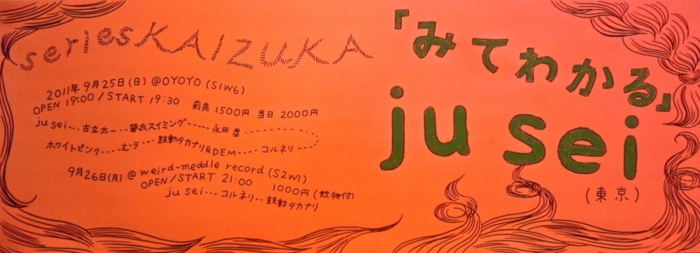 series KAIZUKA
2011年 9月25日(日) @OYOYO (S1W6)
OPEN 19:00 / START 19:30 前売 1500円 当日 2000円
ju sei---古立太一--碧衣スイミング----永田塁
ホワイトピンク----むう----鼓動タカナリ&DEM---コルネリ
9月26日(月) @ weird-meddle record (S2W1)
OPEN/START 21:00 1000円(飲物付)
ju sei---コルネリ--鼓動タカナリ
「みてわかる」
ju sei
(東京)